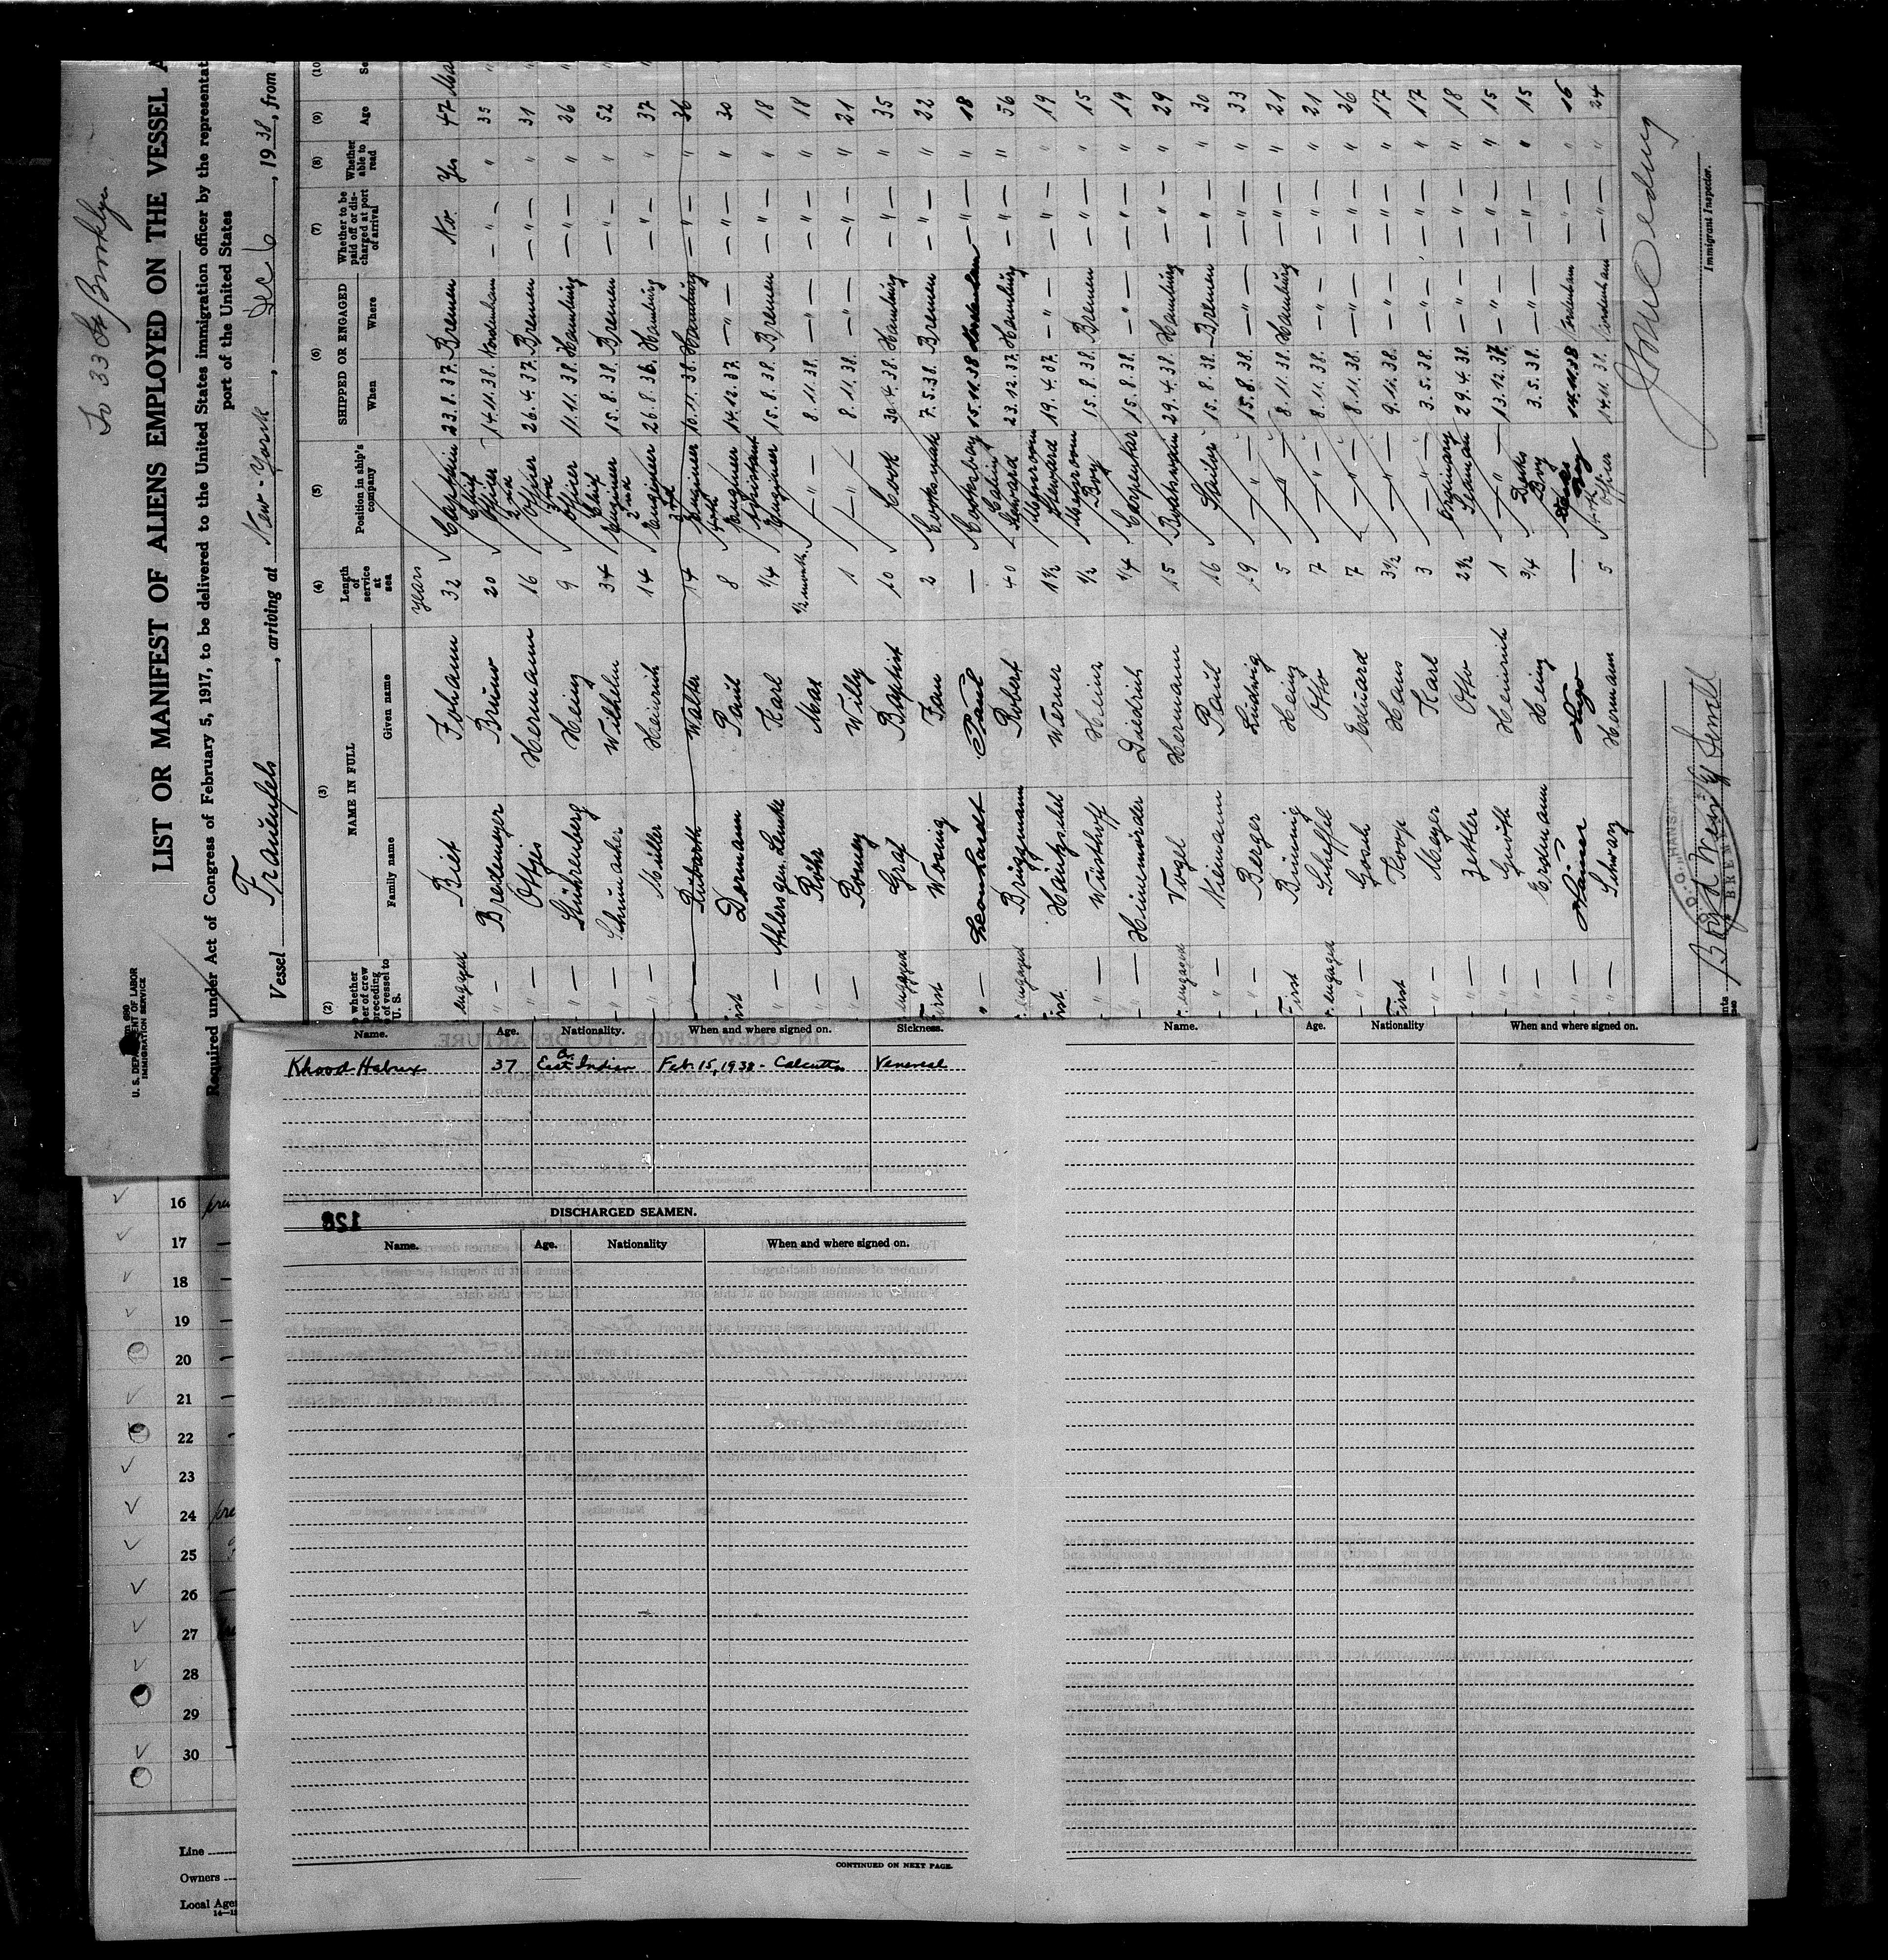 To 33 St Brooklyn
U. S. DEPARTMENT OF LABOR
IMMIGRATION SERVICE
LIST OR MANIFEST OF ALIENS EMPLOYED ON THE VESSEL A
Required under Act of Congress of February 5, 1917, to be delivered to the United States immigration officer by the representat
port of the United States
Vessel Frauenfels, arriving at New-York, Dec 6, 1938, from
(2) (3) (4) (5) (6) (7) (8) (9) (10
NAME IN FULL
Family name Given name
Length of service at sea
Position in ship's company
SHIPPED OR ENGAGED
When Where
Whether to be paid off or discharged at port of arrival
Whether able to read
Age
Years
Biet Johann 32 Captain 23.8.37. Bremen No Yes 47
" — Bredemeyer Bruno 20 Chief Officer 14.11.38. Nordenham — " — " 35
— Hermann 16 2nd Officer 26.4.37. Bremen — " — " 31
" — Stührenberg Heinz 9 3rd Officer 11.11.38. Hamburg — " — " 26
— Schumacher Wilhelm 34 Chief Engineer 15.8.38. Bremen — " — " 52
— Müller Heinrich 14 2nd Engineer 26.8.36. Hamburg — " — " 37
— Walter 14 3rd Engineer 10.11.38. Hamburg — " — " 36
First Dormann Paul 8 4th Engineer 14.12.37. — " — — " — " 30
" — Ahlers gen. Lemke Karl 1/4 Assistant Engineer 15.8.38. Bremen — " — " 18
— Röhr Max 1/2 month — " — 8.11.38. — " — — " — " 18
— Willy 1 — " — 8.11.38. — " — — " — " 21
engaged Graf Baptist 10 Cook 30.4.38. Hamburg — " — " 35
First Wosing Jan 2 Cooksmate 7.5.38. Bremen — " — " 22
" — Leonhardt Paul — Cooksboy 15.11.38 Nordenham — " — " 18
engaged Brüggmann Robert 40 Cabin Steward 23.12.37. Hamburg — " — " 56
First Häntzschel Werner 1 1/2 Messroom Steward 19.4.37. — " — — " — " 19
" — Wüsthoff Heinz 1/2 Messroom Boy 15.8.38. Bremen — " — " 15
— Diedrich 1/4 Carpenter 15.8.38. — " — — " — " 19
engaged Vogel Hermann 15 Boatswain 29.4.38. Hamburg — " — " 29
" — Niemann Paul 16 Sailor 15.8.38. Bremen — " — " 30
" — Berger Ludwig 19 — " — 15.8.38. — " — — " — " 33
First Brüning Heinz 5 — " — 8.11.38. Hamburg — " — " 21
engaged Scheffel Otto 7 — " — 8.11.38. — " — — " — " 21
— Gosch Eduard 7 — " — 8.11.38. — " — — " — " 26
First Koop Hans 3 1/2 — " — 9.11.38. — " — — " — " 17
" — Meyer Karl 3 — " — 3.5.38. — " — — " — " 17
" — Zettler Otto 2 1/2 Ordinary Seaman 29.4.38. — " — — " — " 18
" — Heinrich 1 — " — 13.12.37. — " — — " — " 15
— Erdmann Heinz 3/4 Decks Boy 3.5.38. — " — — " — " 15
" — Hugo — Boy 14.11.38 Nordenham — " — " 16
" — Schwarz Hermann 5 4th Officer 14.11.38. Nordenham — " — " 24
Immigrant Inspector.
BREMEN
Name. Age. Nationality. When and where signed on. Sickness.
Khood Habux 37 East Indian Feb. 15, 1938 - Calcutta Venereal
128
DISCHARGED SEAMEN.
Name. Age. Nationality When and where signed on.
CONTINUED ON NEXT PAGE.
Name. Age. Nationality When and where signed on.
16
17
18
19
20
21
22
23
24
25
26
27
28
29
30
Line
Owners
Local Age